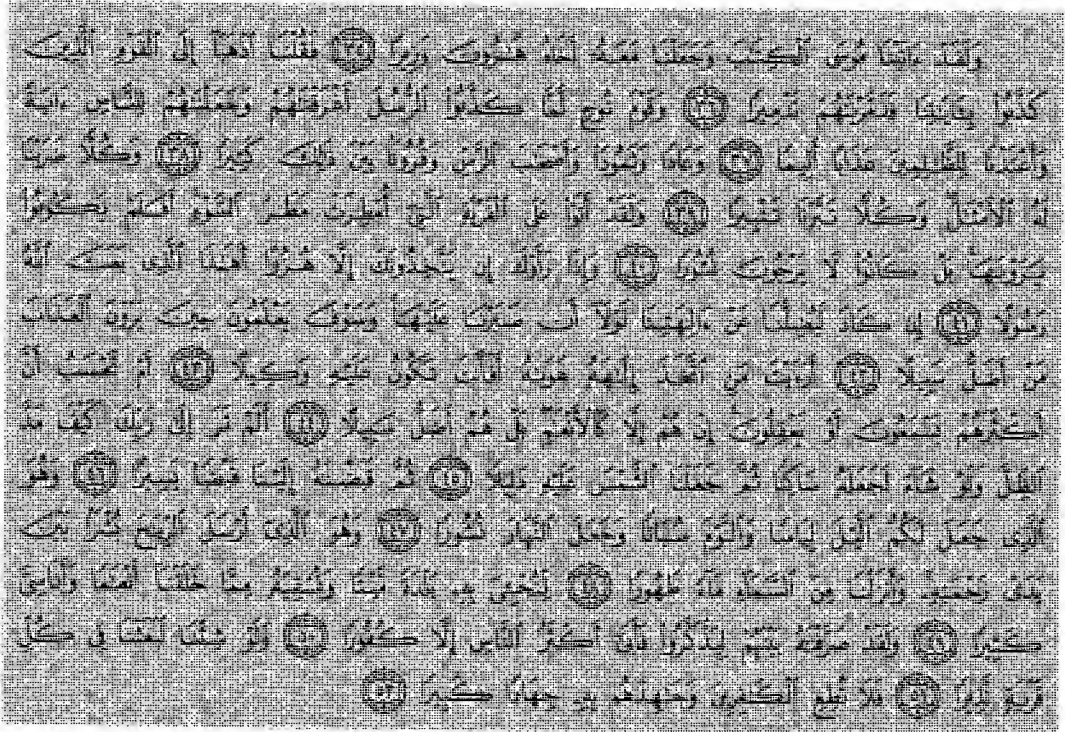 وَلَقَدْ ءَاتَيْنَا مُوسَى ٱلْكِتَـٰبَ وَجَعَلْنَا مَعَهُۥٓ أَخَاهُ هَـٰرُونَ وَزِيرًا ﴿٣٥﴾ فَقُلْنَا ٱذْهَبَآ إِلَى ٱلْقَوْمِ ٱلَّذِينَ
كَذَّبُوا۟ بِـَٔايَـٰتِنَا فَدَمَّرْنَـٰهُمْ تَدْمِيرًا ﴿٣٦﴾ وَقَوْمَ نُوحٍ لَّمَّا كَذَّبُوا۟ ٱلرُّسُلَ أَغْرَقْنَـٰهُمْ وَجَعَلْنَـٰهُمْ لِلنَّاسِ ءَايَةً
وَأَعْتَدْنَا لِلظَّـٰلِمِينَ عَذَابًا أَلِيمًا ﴿٣٧﴾ وَعَادًا وَثَمُودَا۟ وَأَصْحَـٰبَ ٱلرَّسِّ وَقُرُونًۢا بَيْنَ ذَٰلِكَ كَثِيرًا ﴿٣٨﴾ وَكُلًّا ضَرَبْنَا
لَهُ ٱلْأَمْثَـٰلَ وَكُلًّا تَبَّرْنَا تَتْبِيرًا ﴿٣٩﴾ وَلَقَدْ أَتَوْا۟ عَلَى ٱلْقَرْيَةِ ٱلَّتِىٓ أُمْطِرَتْ مَطَرَ ٱلسَّوْءِ أَفَلَمْ يَكُونُوا۟
يَرَوْنَهَا بَلْ كَانُوا۟ لَا يَرْجُونَ نُشُورًا ﴿٤٠﴾ وَإِذَا رَأَوْكَ إِن يَتَّخِذُونَكَ إِلَّا هُزُوًا أَهَـٰذَا ٱلَّذِى بَعَثَ ٱللَّهُ
رَسُولًا ﴿٤١﴾ إِن كَادَ لَيُضِلُّنَا عَنْ ءَالِهَتِنَا لَوْلَآ أَن صَبَرْنَا عَلَيْهَا وَسَوْفَ يَعْلَمُونَ حِينَ يَرَوْنَ ٱلْعَذَابَ
مَنْ أَضَلُّ سَبِيلًا ﴿٤٢﴾ أَرَءَيْتَ مَنِ ٱتَّخَذَ إِلَـٰهَهُۥ هَوَىٰهُ أَفَأَنتَ تَكُونُ عَلَيْهِ وَكِيلًا ﴿٤٣﴾ أَمْ تَحْسَبُ أَنَّ
أَكْثَرَهُمْ يَسْمَعُونَ أَوْ يَعْقِلُونَ إِنْ هُمْ إِلَّا كَٱلْأَنْعَـٰمِ بَلْ هُمْ أَضَلُّ سَبِيلًا ﴿٤٤﴾ أَلَمْ تَرَ إِلَىٰ رَبِّكَ كَيْفَ مَدَّ
ٱلظِّلَّ وَلَوْ شَآءَ لَجَعَلَهُۥ سَاكِنًا ثُمَّ جَعَلْنَا ٱلشَّمْسَ عَلَيْهِ دَلِيلًا ﴿٤٥﴾ ثُمَّ قَبَضْنَـٰهُ إِلَيْنَا قَبْضًا يَسِيرًا ﴿٤٦﴾ وَهُوَ
ٱلَّذِى جَعَلَ لَكُمُ ٱلَّيْلَ لِبَاسًا وَٱلنَّوْمَ سُبَاتًا وَجَعَلَ ٱلنَّهَارَ نُشُورًا ﴿٤٧﴾ وَهُوَ ٱلَّذِىٓ أَرْسَلَ ٱلرِّيَـٰحَ بُشْرًۢا بَيْنَ
يَدَىْ رَحْمَتِهِۦ وَأَنزَلْنَا مِنَ ٱلسَّمَآءِ مَآءً طَهُورًا ﴿٤٨﴾ لِّنُحْـِۧىَ بِهِۦ بَلْدَةً مَّيْتًا وَنُسْقِيَهُۥ مِمَّا خَلَقْنَآ أَنْعَـٰمًا وَأَنَاسِىَّ
كَثِيرًا ﴿٤٩﴾ وَلَقَدْ صَرَّفْنَـٰهُ بَيْنَهُمْ لِيَذَّكَّرُوا۟ فَأَبَىٰٓ أَكْثَرُ ٱلنَّاسِ إِلَّا كُفُورًا ﴿٥٠﴾ وَلَوْ شِئْنَا لَبَعَثْنَا فِى كُلِّ
قَرْيَةٍ نَّذِيرًا ﴿٥١﴾ فَلَا تُطِعِ ٱلْكَـٰفِرِينَ وَجَـٰهِدْهُم بِهِۦ جِهَادًا كَبِيرًا ﴿٥٢﴾